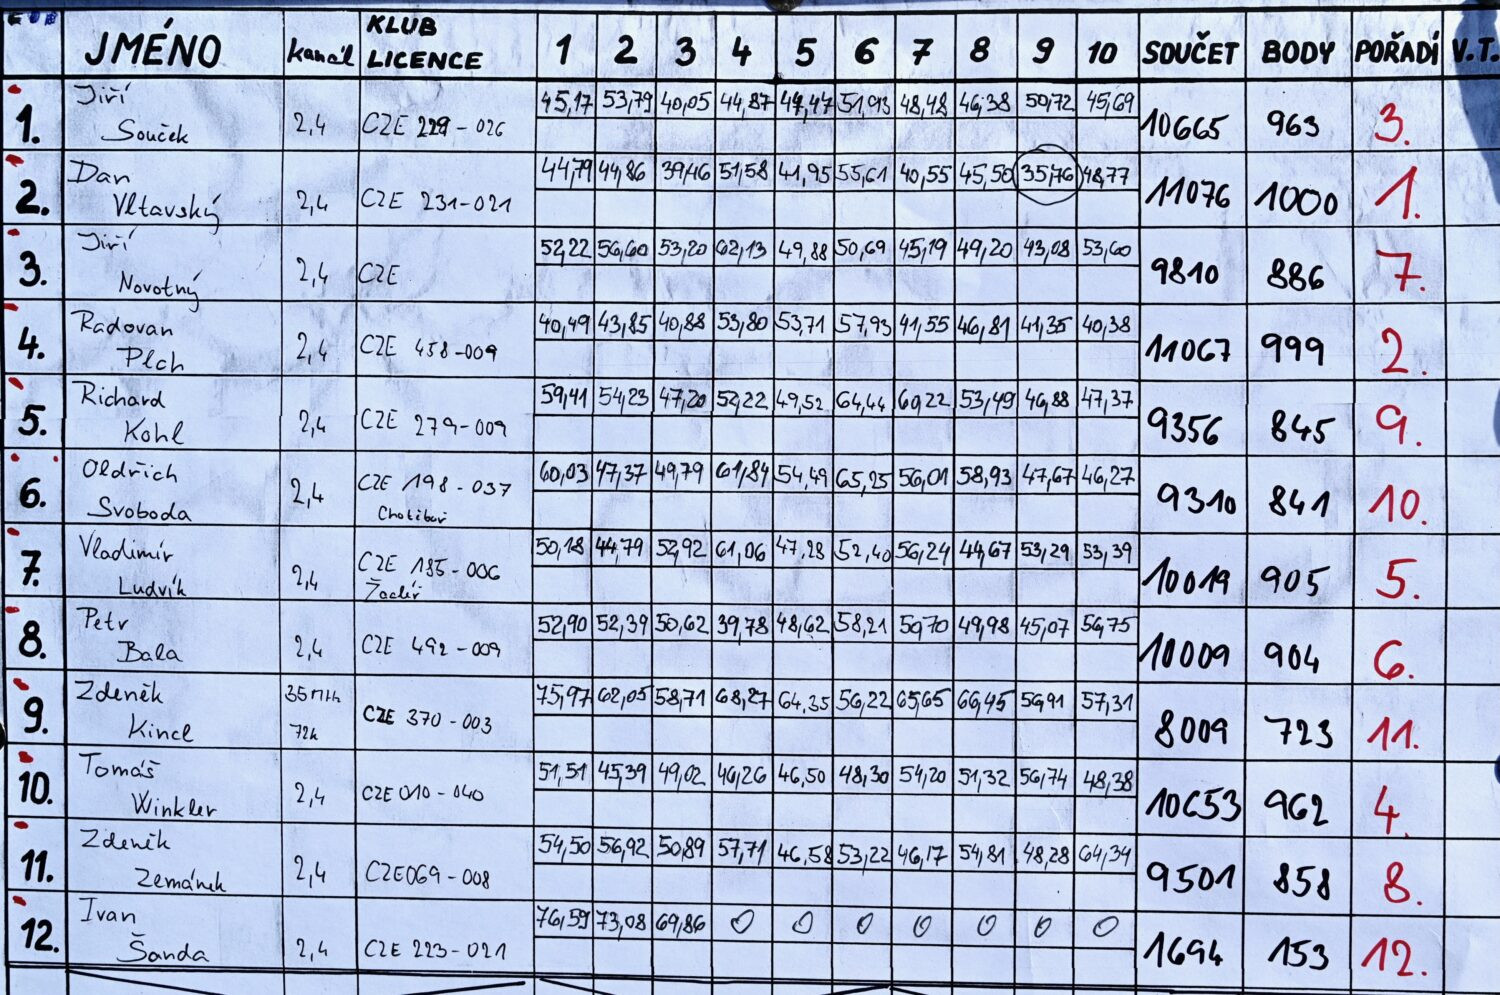 JMÉNO kanál KLUB LICENCE 1 2 3 4 5 6 7 8 9 10 SOUČET BODY POŘADÍ V.T.
1. Jiří Souček 2,4 CZE 229-026 45,17 53,79 40,05 44,87 47,47 51,93 48,48 46,38 50,72 45,69 10665 963 3.
2. Dan Vltavský 2,4 CZE 231-021 44,79 44,86 39,46 51,58 41,95 55,61 40,55 45,50 35,76 48,77 11076 1000 1.
3. Jiří Novotný 2,4 CZE 52,22 56,60 53,20 62,13 49,88 50,69 45,19 49,20 43,08 53,60 9810 886 7.
4. Radovan Plch 2,4 CZE 458-009 40,49 43,85 40,88 53,80 53,71 57,93 41,55 46,81 41,35 40,38 11067 999 2.
5. Richard Kohl 2,4 CZE 279-009 59,41 54,23 47,20 52,22 49,52 64,44 60,22 53,49 46,88 47,37 9356 845 9.
6. Oldřich Svoboda 2,4 CZE 198-037 Chotěboř 60,03 47,37 49,79 61,84 54,49 65,25 56,01 58,93 47,67 46,27 9310 841 10.
7. Vladimír Ludvík 2,4 CZE 185-006 Žacléř 50,18 44,79 52,92 61,06 47,28 52,40 56,24 44,67 53,29 53,39 10019 905 5.
8. Petr Bala 2,4 CZE 492-009 52,90 52,39 50,62 39,78 48,62 58,21 50,70 49,98 45,07 56,75 10009 904 6.
9. Zdeněk Kincl 35MHh 72k CZE 370-003 75,97 62,05 58,71 68,27 64,35 56,22 65,65 66,45 56,91 57,31 8009 723 11.
10. Tomáš Winkler 2,4 CZE 010-040 51,51 45,39 49,02 46,26 46,50 48,30 54,20 51,32 56,74 48,38 10653 962 4.
11. Zdeněk Zemánek 2,4 CZE069-008 54,50 56,92 50,89 57,71 46,58 53,22 46,17 54,81 48,28 64,34 9501 858 8.
12. Ivan Šanda 2,4 CZE 223-021 76,59 73,08 69,86 0 0 0 0 0 0 0 1694 153 12.